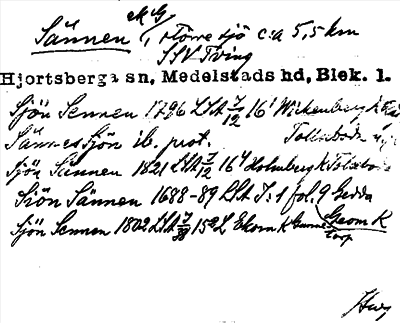 Sännen MG, större sjö c:a 5,5 km
SSV Tving
Hjortsberga sn, Medelstads hd, Blek. 1.
Sjön Sennen 1796 LSA J/12 16¹ Wickenberg K
Sännes Sjön ib. prot.
Sjön Sännen 1821 LSA J/12 16⁴ Holmberg K
Siön Sännen 1688-89 LSA J:1 fol. 9 Gedda
Sjön Sennen 1802 LSA 15² L Ekorn K Geom K
torp